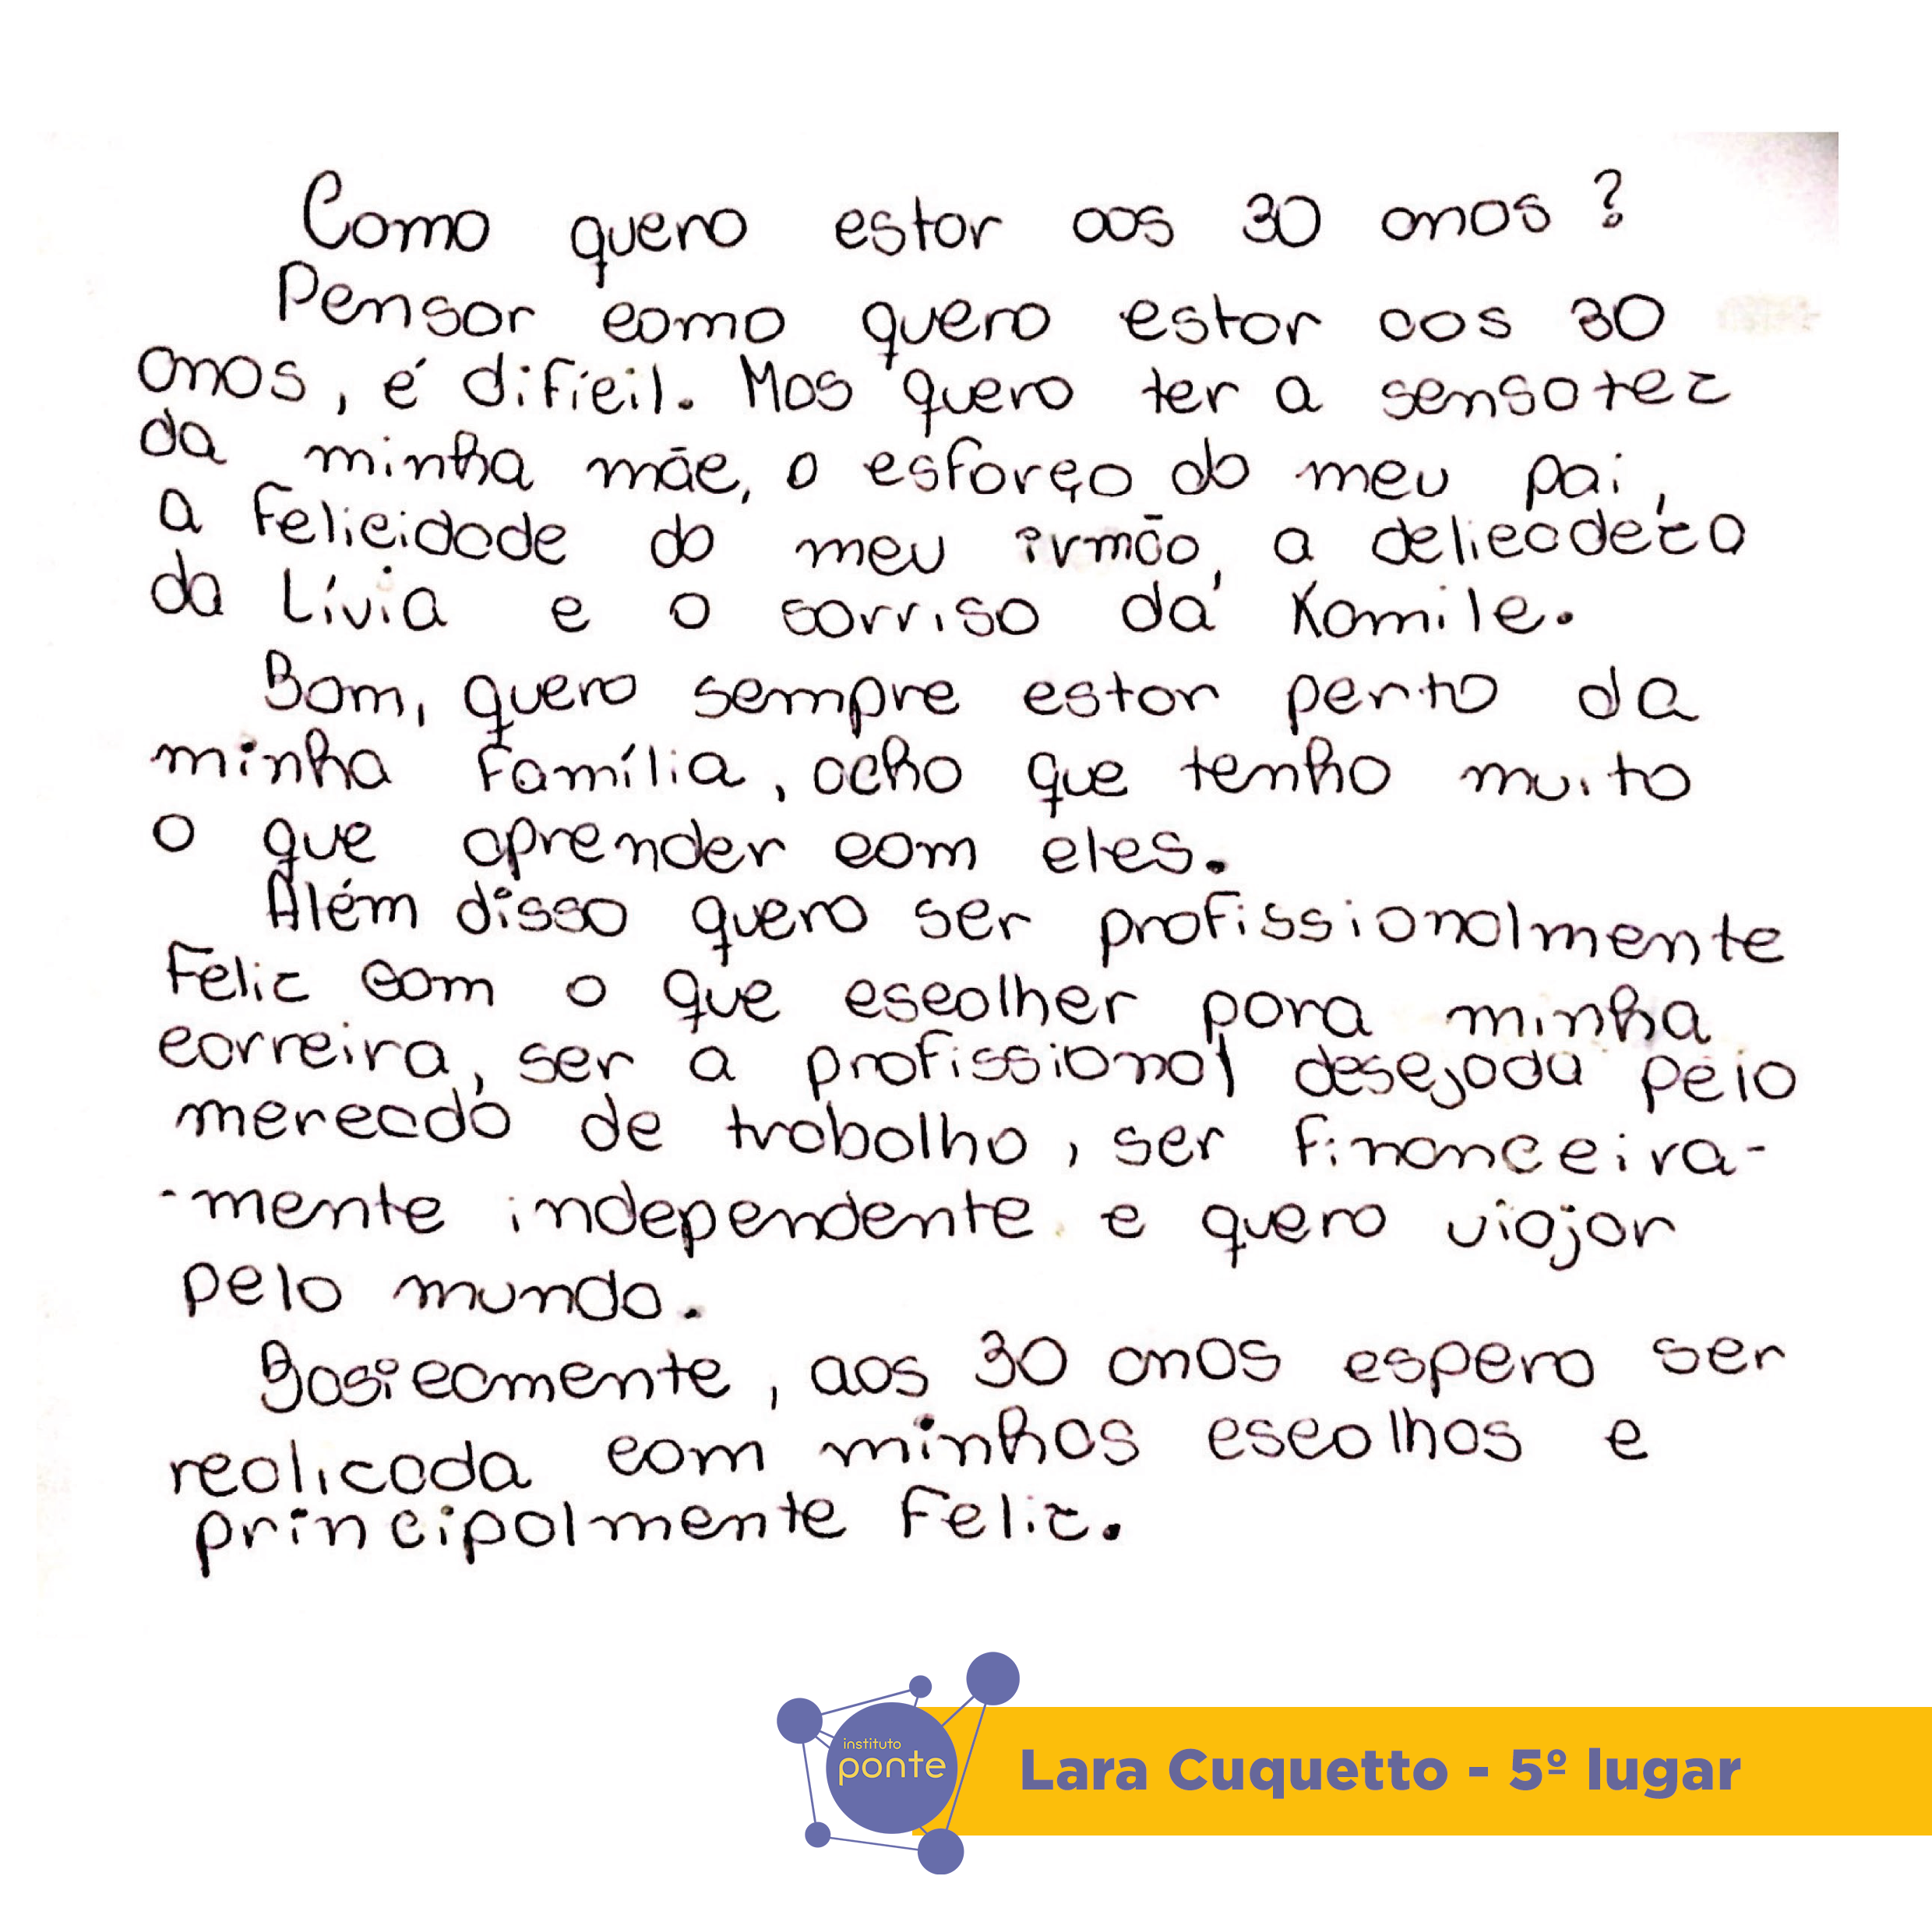 Como quero estar aos 30 anos?
Pensar como quero estar aos 30
anos, é difícil. Mas quero ter a sensatez
da minha mãe, o esforço do meu pai,
a felicidade do meu irmão, a delicadeza
da Lívia e o sorriso da Kamile.
Bom, quero sempre estar perto da
minha família, acho que tenho muito
o que aprender com eles.
Além disso quero ser profissionalmente
feliz com o que escolher para minha
carreira, ser a profissional desejada pelo
mercado de trabalho, ser financeira-
-mente independente e quero viajar
pelo mundo.
Basicamente, aos 30 anos espero ser
realizada com minhas escolhas e
principalmente feliz.
instituto
ponte
Lara Cuquetto - 5º lugar